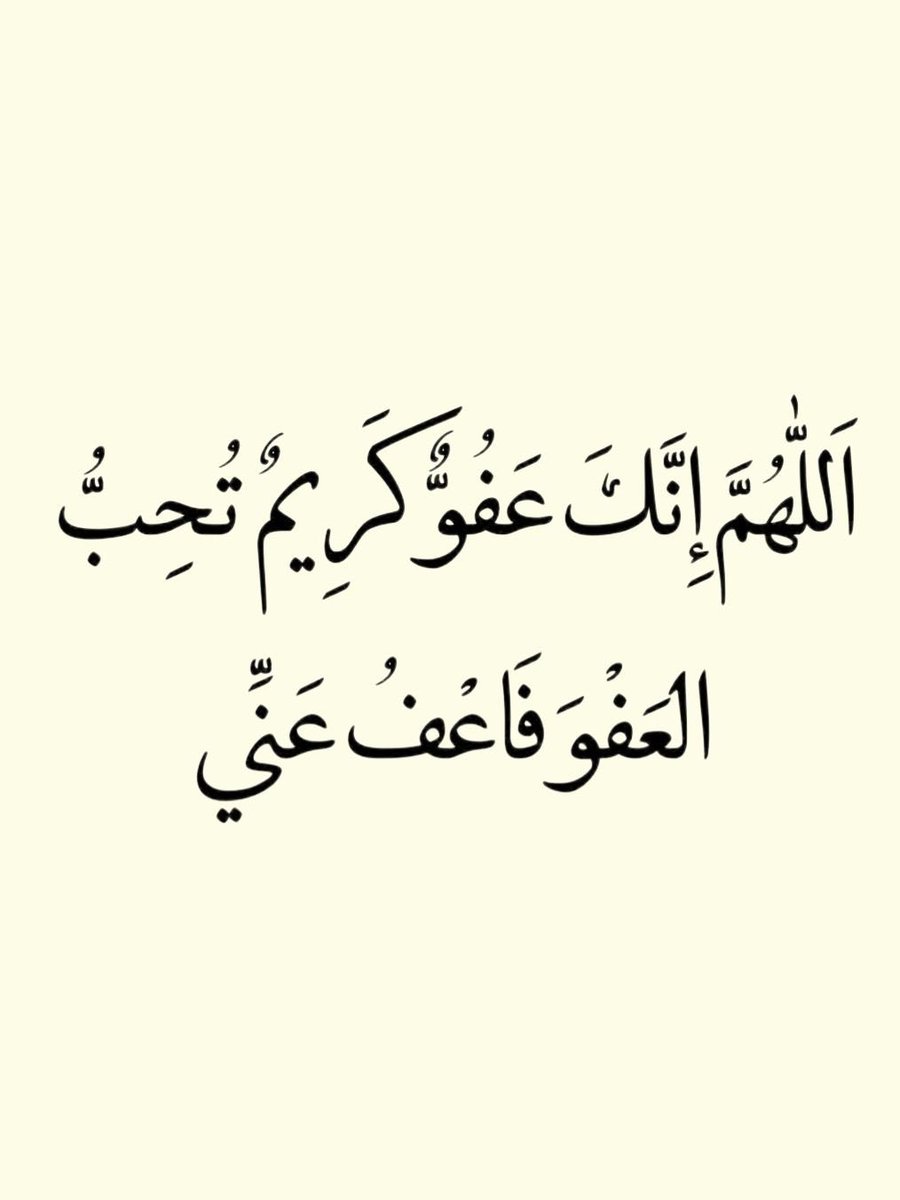 اَللّٰهُمَّ إِنَّكَ عَفُوٌّ كَرِيمٌ تُحِبُّ
الْعَفْوَ فَاعْفُ عَنِّي